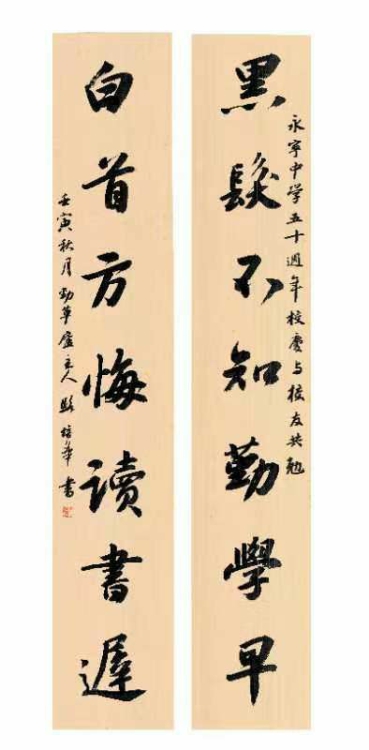 永寧中学五十週年校慶与校友共勉
黑髮不知勤學早
白首方悔讀書遲
壬寅秋月勁草廬主人培華書